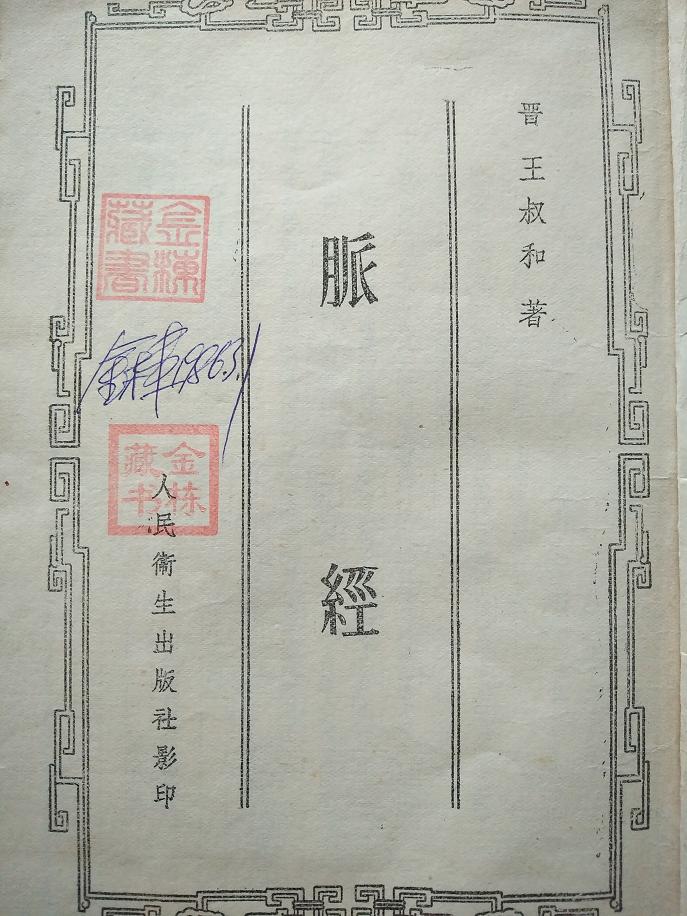 晋 王叔和 著
脈經
金棟藏書
金栋 1986.3.1
金栋藏书
人民衞生出版社影印